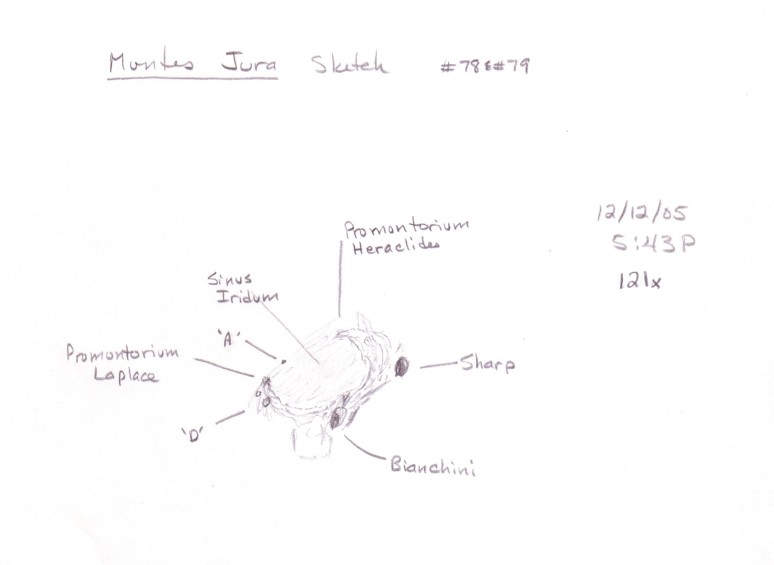 Montes Jura Sketch #78&#79
12/12/05
5:43P
121x
Promontorium
Heraclides
Sinus
Iridum
'A'
Promontorium
Laplace
Sharp
'D'
Bianchini